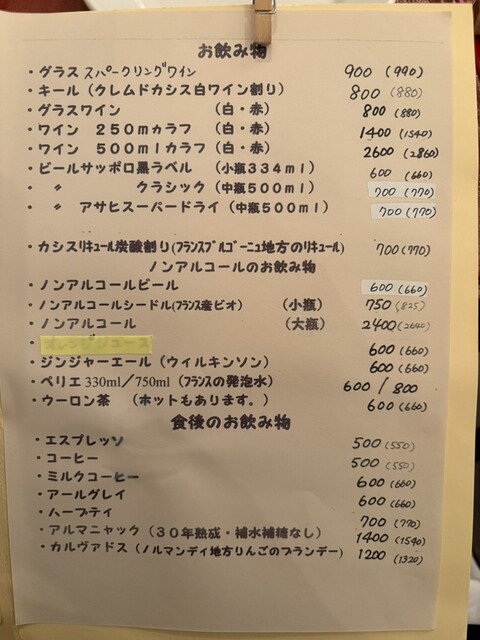 お飲み物
・グラス スパークリングワイン 900 (990)
・キール（クレムドカシス白ワイン割り） 800 (880)
・グラスワイン （白・赤） 800 (880)
・ワイン 250mカラフ （白・赤） 1400 (1540)
・ワイン 500mlカラフ （白・赤） 2600 (2860)
・ビールサッポロ黒ラベル （小瓶334ml） 600 (660)
・ 〃 クラシック（中瓶500ml） 700 (770)
・ 〃 アサヒスーパードライ（中瓶500ml） 700 (770)
・カシスリキュール炭酸割り(フランスブルゴーニュ地方のリキュール) 700 (770)
ノンアルコールのお飲み物
・ノンアルコールビール 600 (660)
・ノンアルコールシードル(フランス産ビオ) （小瓶） 750 (825)
・ノンアルコール （大瓶） 2400 (2640)
・オレンジジュース 600 (660)
・ジンジャーエール（ウィルキンソン） 600 (660)
・ペリエ 330ml／750ml（フランスの発泡水） 600 / 800
・ウーロン茶 （ホットもあります。） 600 (660)
食後のお飲み物
・エスプレッソ 500 (550)
・コーヒー 500 (550)
・ミルクコーヒー 600 (660)
・アールグレイ 600 (660)
・ハーブティ 700 (770)
・アルマニャック（３０年熟成・補水補糖なし） 1400 (1540)
・カルヴァドス（ノルマンディ地方りんごのブランデー） 1200 (1320)